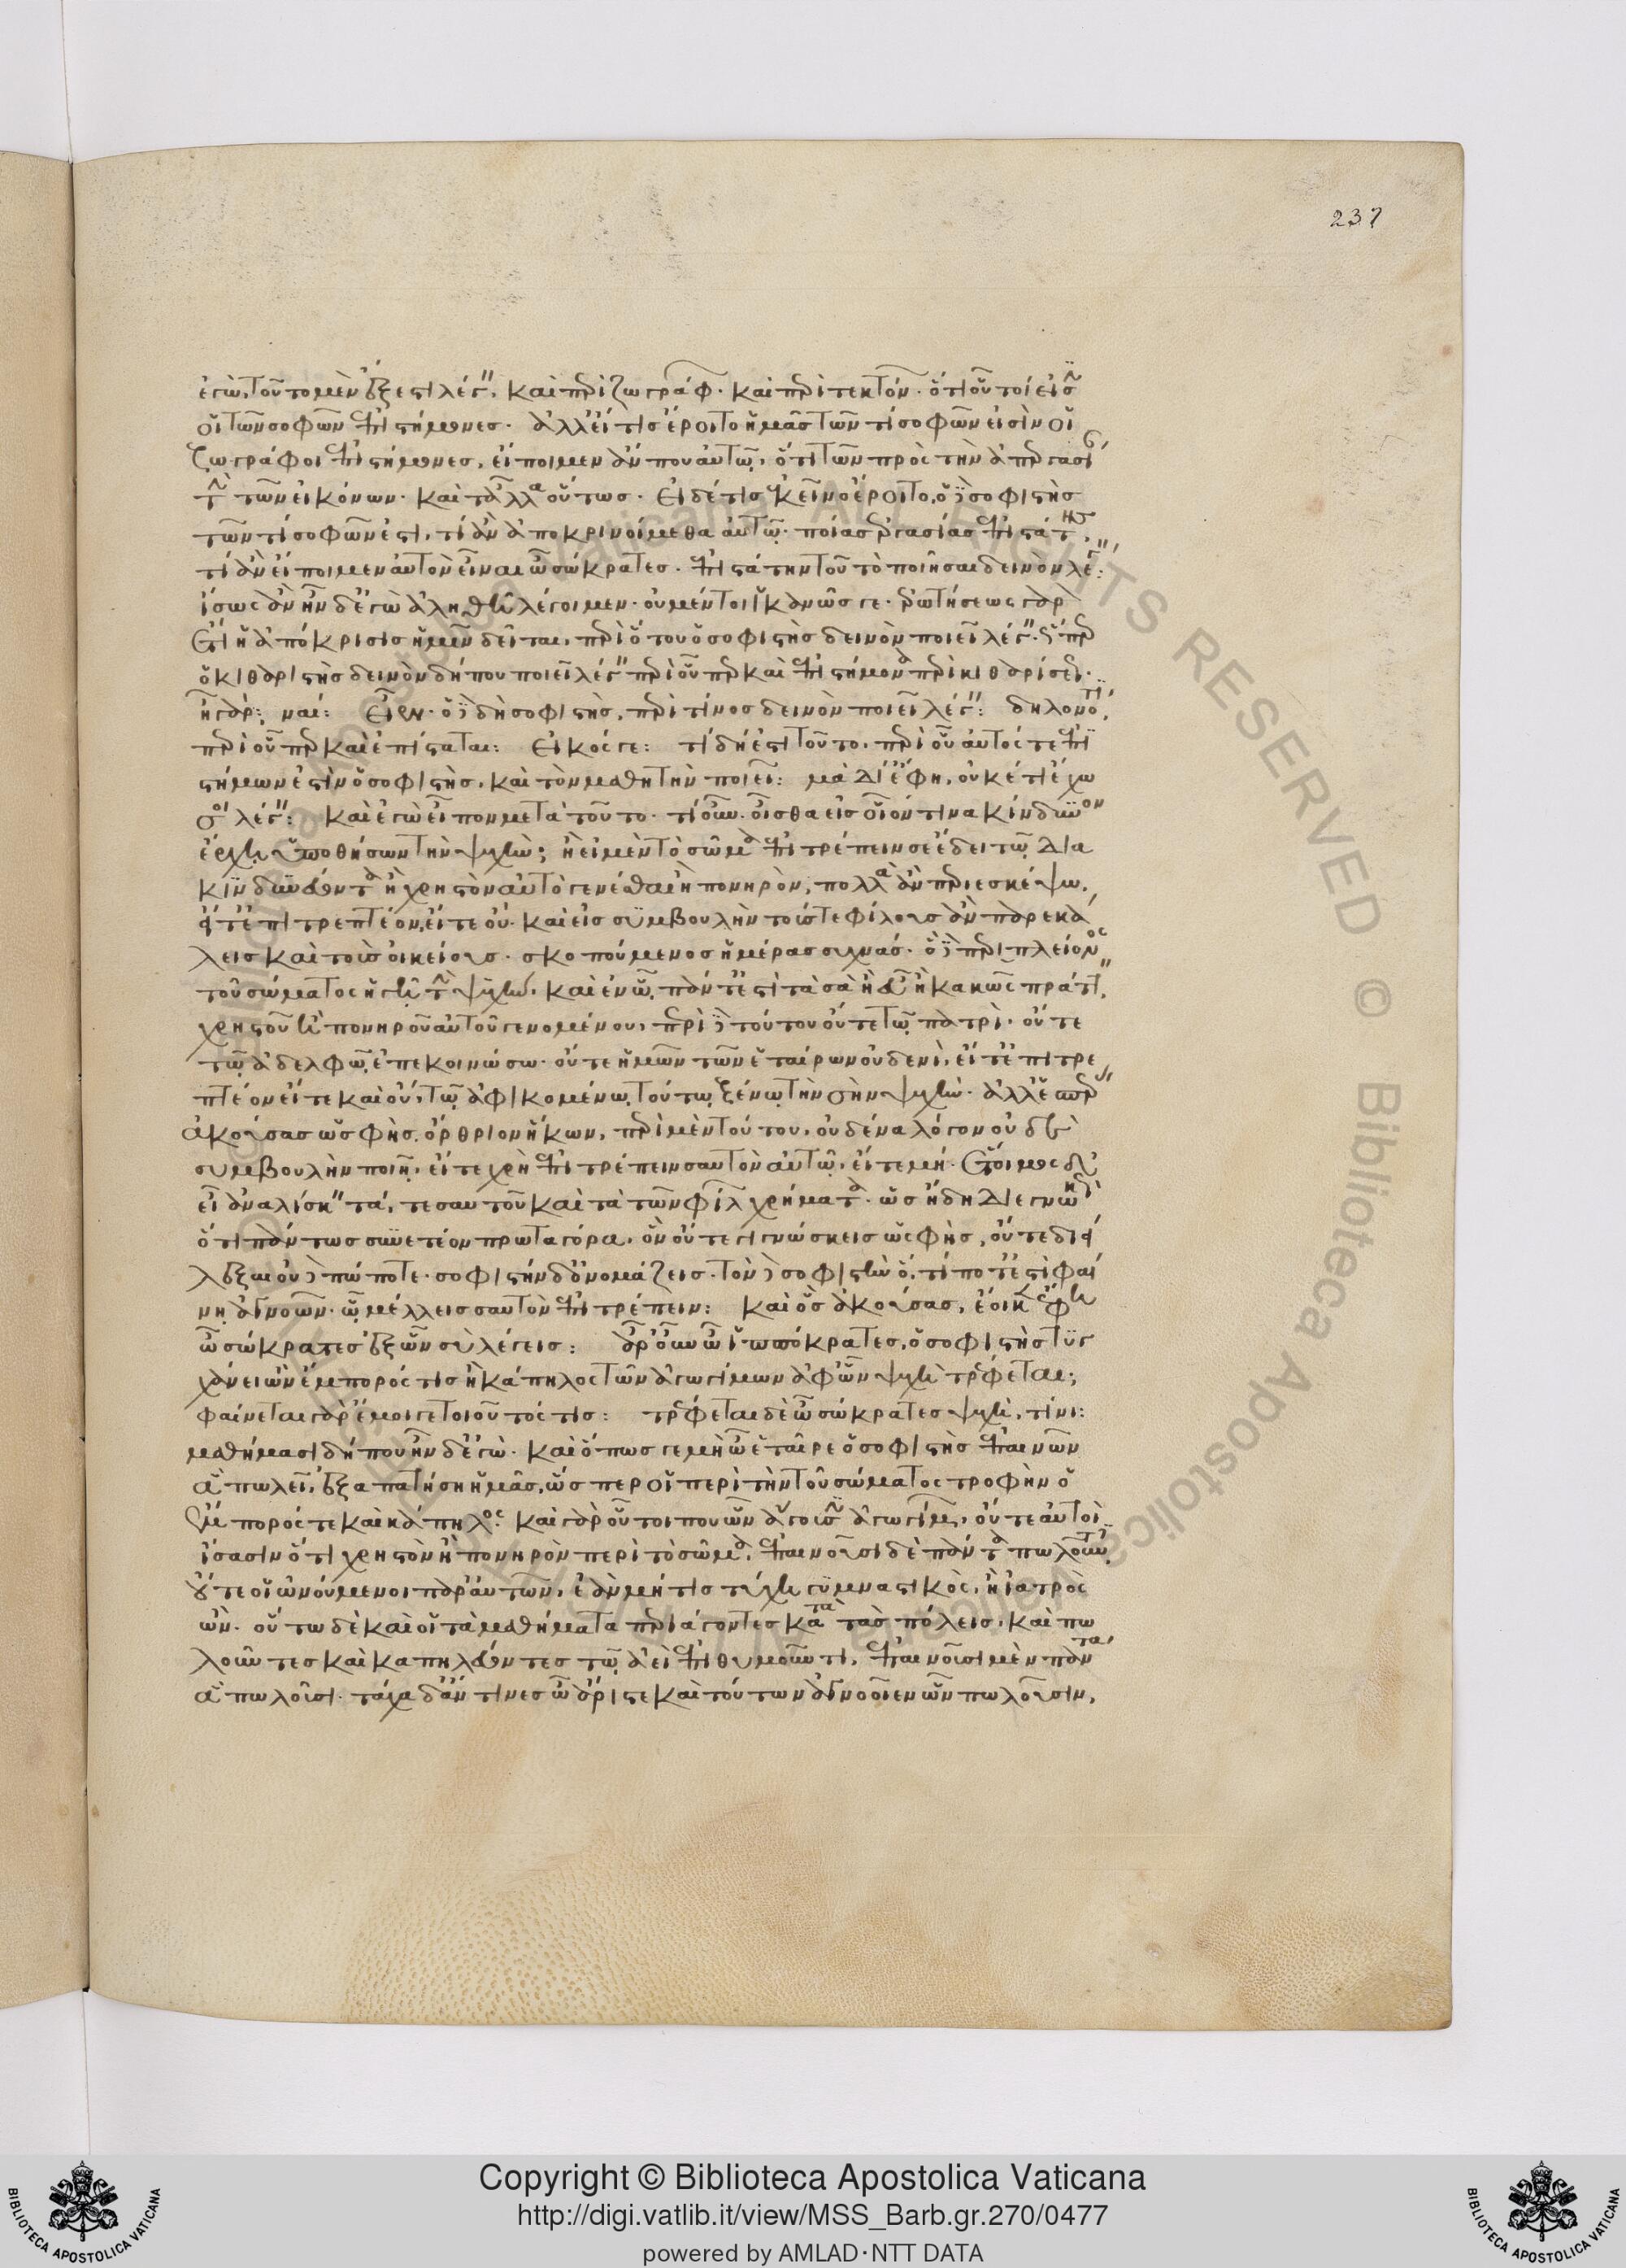 237
ἐγὼ, τοῦτο μὲν ἔξεστι λέγειν, καὶ περὶ ζωγράφων· καὶ περὶ τεκτόνων· ὅτι οὗτοί εἰσιν
οἱ τῶν σοφῶν ἐπιστήμονες· ἀλλ' εἴ τις ἔροιτο ἡμᾶς τῶν τί σοφῶν εἰσὶν οἱ
ζωγράφοι ἐπιστήμονες, εἴποιμεν ἄν που αὐτῷ, ὅτι τῶν πρὸς τὴν ἀπεργασίαν
τὴν τῶν εἰκόνων· καὶ τἆλλα οὕτως· εἰ δέ τις ἐκεῖνο ἔροιτο, ὁ δὲ σοφιστὴς
τῶν τί σοφῶν ἐστι, τί ἂν ἀποκρινοίμεθα αὐτῷ· ποίας ἐργασίας ἐπιστάτης,
τί ἂν εἴποιμεν αὐτὸν εἶναι ὦ σώκρατες· ἐπιστάτην τοῦ τὸ ποιῆσαι δεινὸν λέγειν:
ἴσως ἂν ἦν δ' ἐγὼ ἀληθῆ λέγοιμεν· οὐ μέντοι ἱκανῶς γε· ἐρωτήσεως γὰρ
ἔτι ἡ ἀπόκρισις ἡμῖν δεῖται, περὶ ὅτου ὁ σοφιστὴς δεινὸν ποιεῖ λέγειν· ὥσπερ
ὁ κιθαριστὴς δεινὸν δήπου ποιεῖ λέγειν περὶ οὗπερ καὶ ἐπιστήμονα περὶ κιθαρίσεως·
ἦ γάρ: ναί: εἶεν· ὁ δὲ δὴ σοφιστὴς, περὶ τίνος δεινὸν ποιεῖ λέγειν: δηλονότι,
περὶ οὗπερ καὶ ἐπίσταται: εἰκός γε: τί δή ἐστι τοῦτο, περὶ οὗ αὐτός τε ἐπι
στήμων ἐστὶν ὁ σοφιστὴς, καὶ τὸν μαθητὴν ποιεῖ: μὰ Δί' ἔφη, οὐκέτι ἔχω
σοι λέγειν: καὶ ἐγὼ εἶπον μετὰ τοῦτο· τί οὖν· οἶσθα εἰς οἷόν τινα κίνδυνον
ἔρχῃ ὑποθήσων τὴν ψυχὴν; ἢ εἰ μὲν τὸ σῶμα ἐπιτρέπειν σε ἔδει τῷ δια
κινδυνεύοντα ἢ χρηστὸν αὐτὸ γενέσθαι ἢ πονηρὸν, πολλὰ ἂν περιεσκέψω,
εἴτ' ἐπιτρεπτέον, εἴτε οὔ· καὶ εἰς συμβουλὴν τούς τε φίλους ἂν παρεκά
λεις καὶ τοὺς οἰκείους· σκοπούμενος ἡμέρας συχνάς· ὃ δὲ περὶ πλείονος
τοῦ σώματος ἡγῇ τὴν ψυχὴν, καὶ ἐν ᾧ, πάντ' ἐστὶ τὰ σὰ ἢ εὖ ἢ κακῶς πράττειν,
χρηστοῦ ἢ πονηροῦ αὐτοῦ γενομένου, περὶ δὲ τούτου οὔτε τῷ πατρὶ· οὔτε
τῷ ἀδελφῷ ἐπεκοινώσω· οὔτε ἡμῶν τῶν ἑταίρων οὐδενὶ, εἴτ' ἐπιτρε
πτέον εἴτε καὶ οὔ, τῷ ἀφικομένῳ τούτῳ ξένῳ τὴν σὴν ψυχὴν· ἀλλ' ἑσπέρας
ἀκούσας ὥς φῂς, ὄρθριον ἥκων, περὶ μὲν τούτου, οὐδένα λόγον οὐδὲ
συμβουλὴν ποιῇ, εἴτε χρὴ ἐπιτρέπειν σαυτὸν αὐτῷ, εἴτε μή· ἕτοιμος δ'
εἶ ἀναλίσκειν τά, τε σαυτοῦ καὶ τὰ τῶν φίλων χρήματα· ὡς ἤδη διεγνωκὼς
ὅτι πάντως συνετέον πρωταγόρᾳ, ὃν οὔτε γιγνώσκεις ὥς φῂς, οὔτε διεί
λεξαι οὐδὲ πώποτε· σοφιστὴν δ' ὀνομάζεις· τὸν δὲ σοφιστὴν ὅ,τί ποτ' ἐστὶ φαί
νῃ ἀγνοῶν· ᾧ μέλλεις σαυτὸν ἐπιτρέπειν: καὶ ὃς ἀκούσας, ἔοικεν ἔφη
ὦ σώκρατες ἐξ ὧν σὺ λέγεις: ἆρ' οὖν ὦ ἱππόκρατες, ὁ σοφιστὴς τυγ
χάνει ὢν ἔμπορός τις ἢ κάπηλος τῶν ἀγωγίμων ἀφ' ὧν ψυχὴ τρέφεται;
φαίνεται γὰρ ἔμοιγε τοιοῦτός τις: τρέφεται δὲ ὦ σώκρατες ψυχὴ, τίνι:
μαθήμασι δήπου ἦν δ' ἐγὼ· καὶ ὅπως γε μὴ ὦ ἑταῖρε ὁ σοφιστὴς ἐπαινῶν
ἃ πωλεῖ, ἐξαπατήσῃ ἡμᾶς, ὥσπερ οἱ περὶ τὴν τοῦ σώματος τροφὴν ὁ
ἔμπορός τε καὶ κάπηλος· καὶ γὰρ οὗτοί που ὧν ἄγουσιν ἀγωγίμων, οὔτε αὐτοὶ
ἴσασιν ὅτι χρηστὸν ἢ πονηρὸν περὶ τὸ σῶμα, ἐπαινοῦσι δὲ πάντα πωλοῦντες,
οὔτε οἱ ὠνούμενοι παρ' αὐτῶν, ἐὰν μή τις τύχῃ γυμναστικὸς, ἢ ἰατρὸς
ὤν· οὕτω δὲ καὶ οἱ τὰ μαθήματα περιάγοντες κατὰ τὰς πόλεις, καὶ πω
λοῦντες καὶ καπηλεύοντες τῷ ἀεὶ ἐπιθυμοῦντι, ἐπαινοῦσι μὲν πάντα
ἃ πωλοῦσι· τάχα δ' ἄν τινες ὦ ἄριστε καὶ τούτων ἀγνοοῖεν ὧν πωλοῦσιν,
Copyright © Biblioteca Apostolica Vaticana
http://digi.vatlib.it/view/MSS_Barb.gr.270/0477
powered by AMLAD·NTT DATA